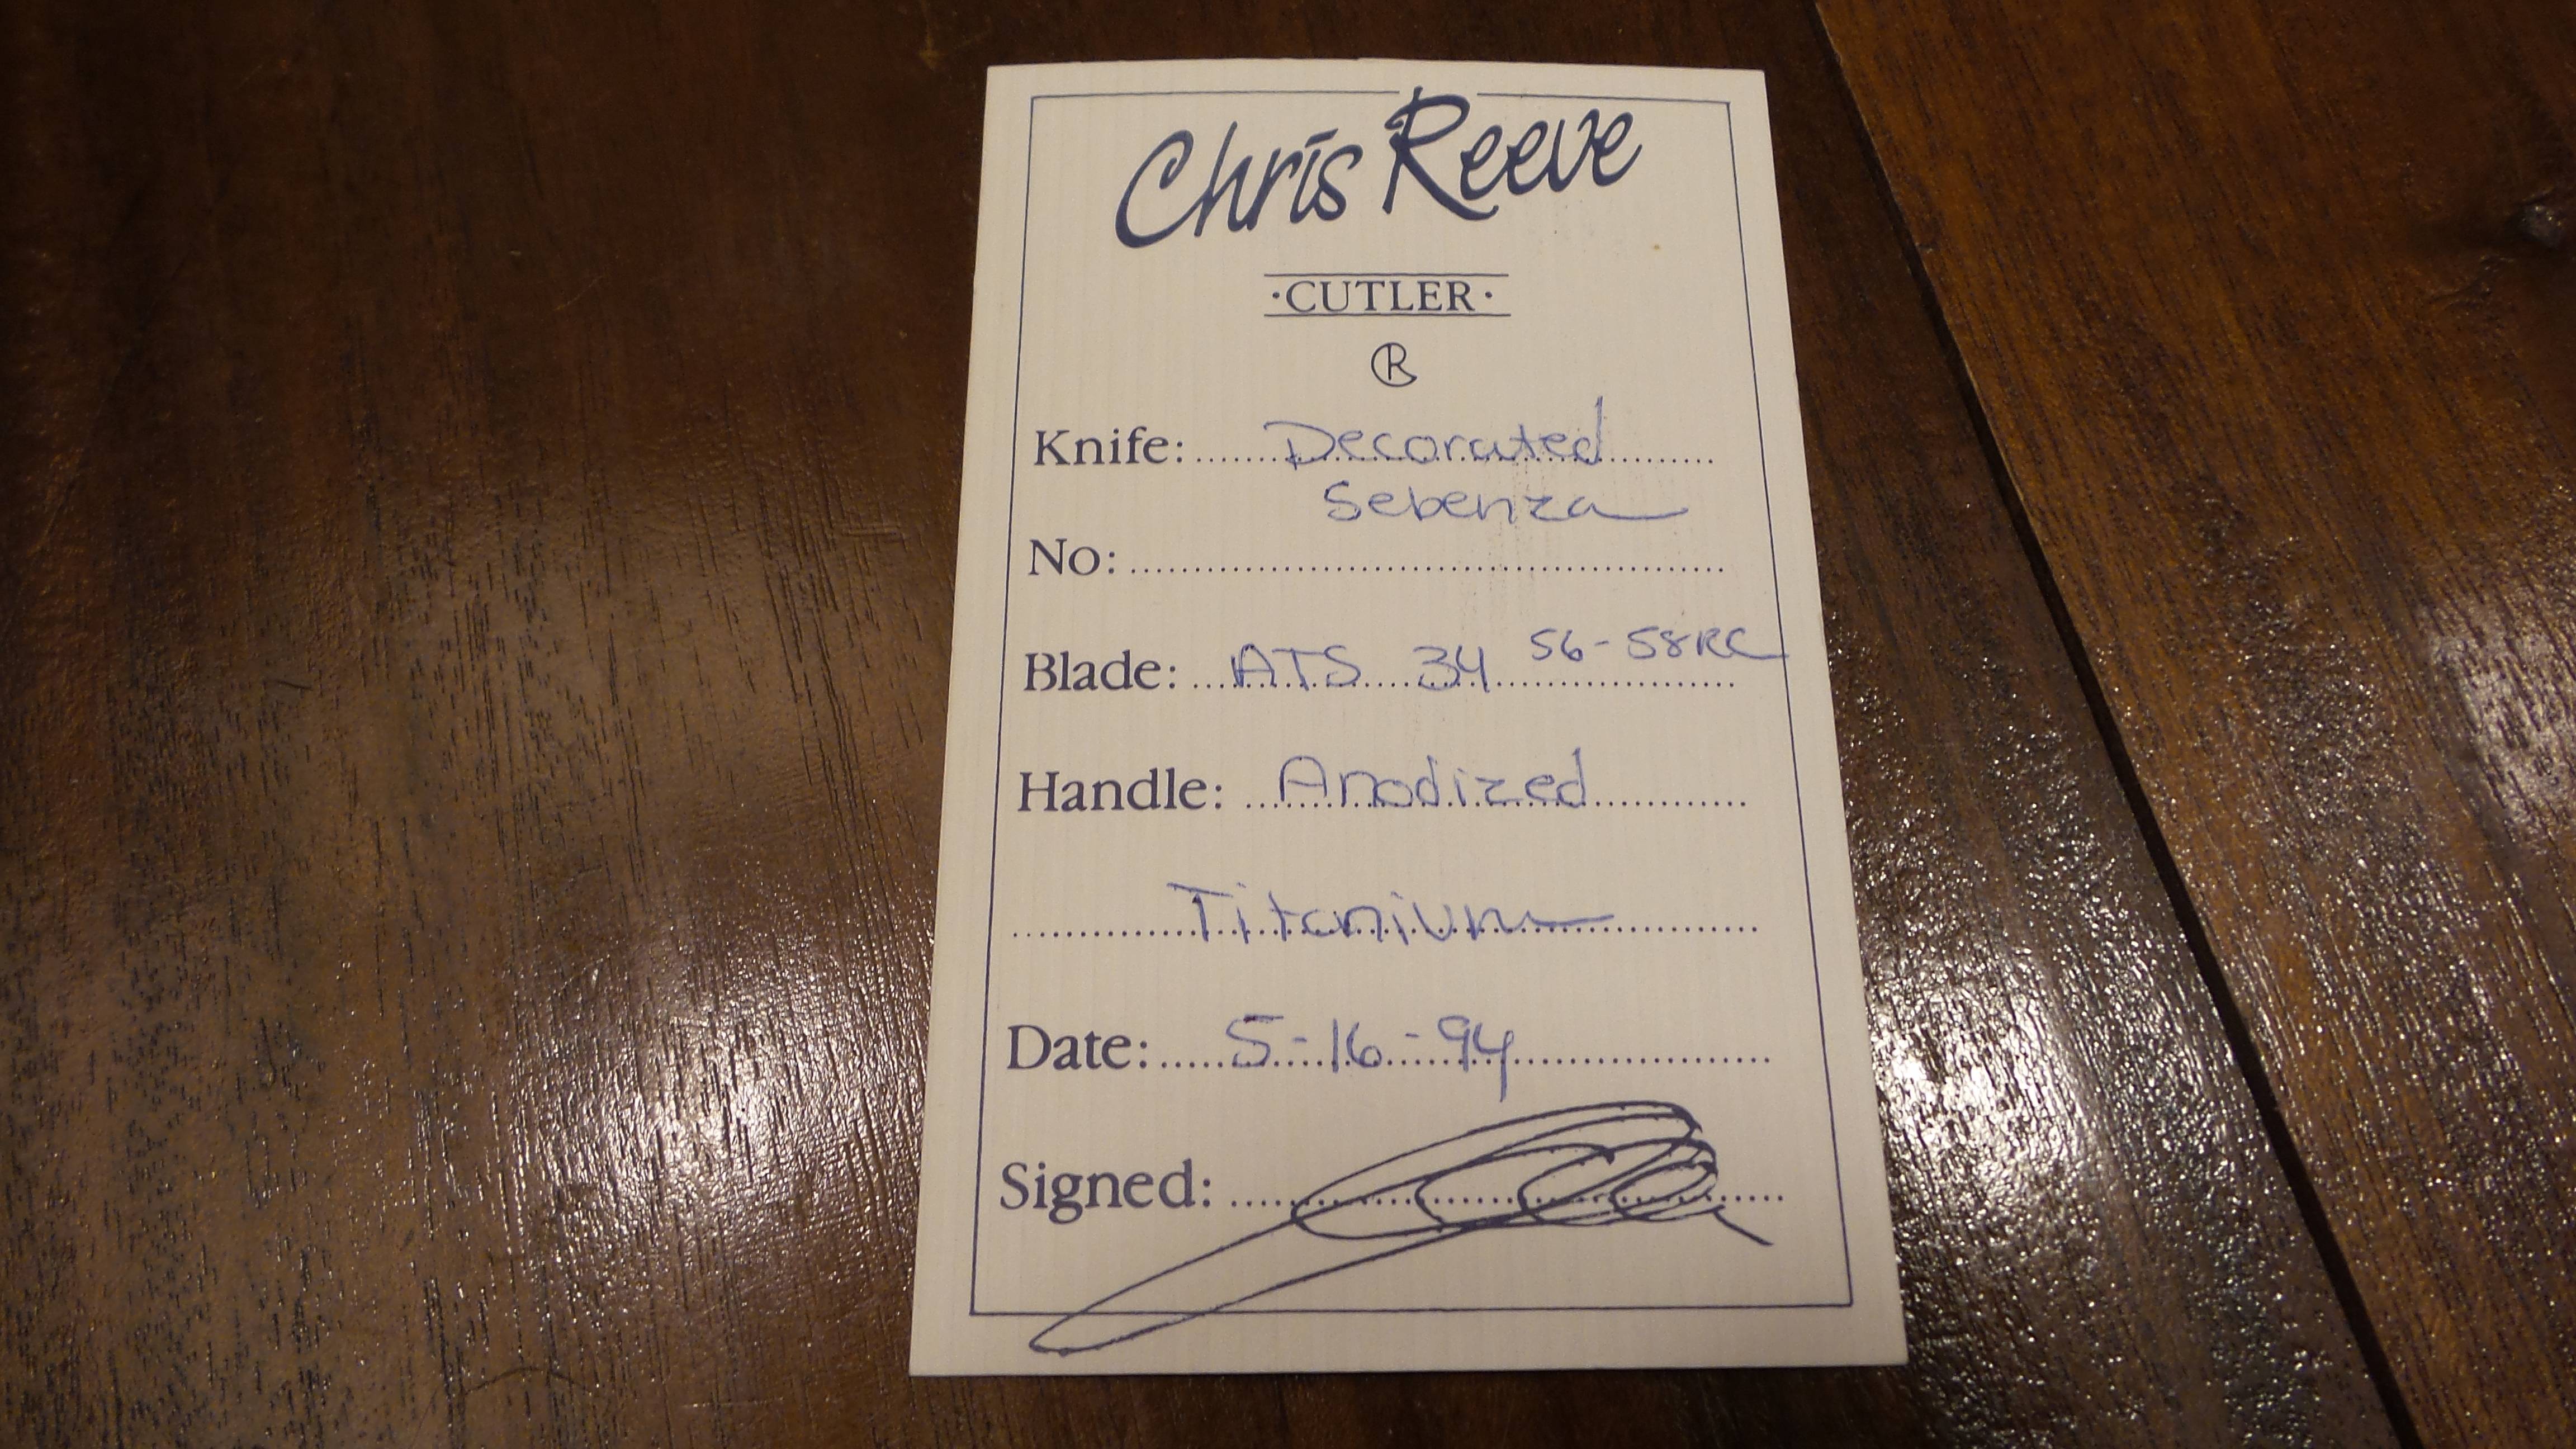 Chris Reeve
·CUTLER·
CR
Knife: Decorated
Sebenza
No:
Blade: ATS 34 56-58RC
Handle: Anodized
Titanium
Date: 5-16-94
Signed: